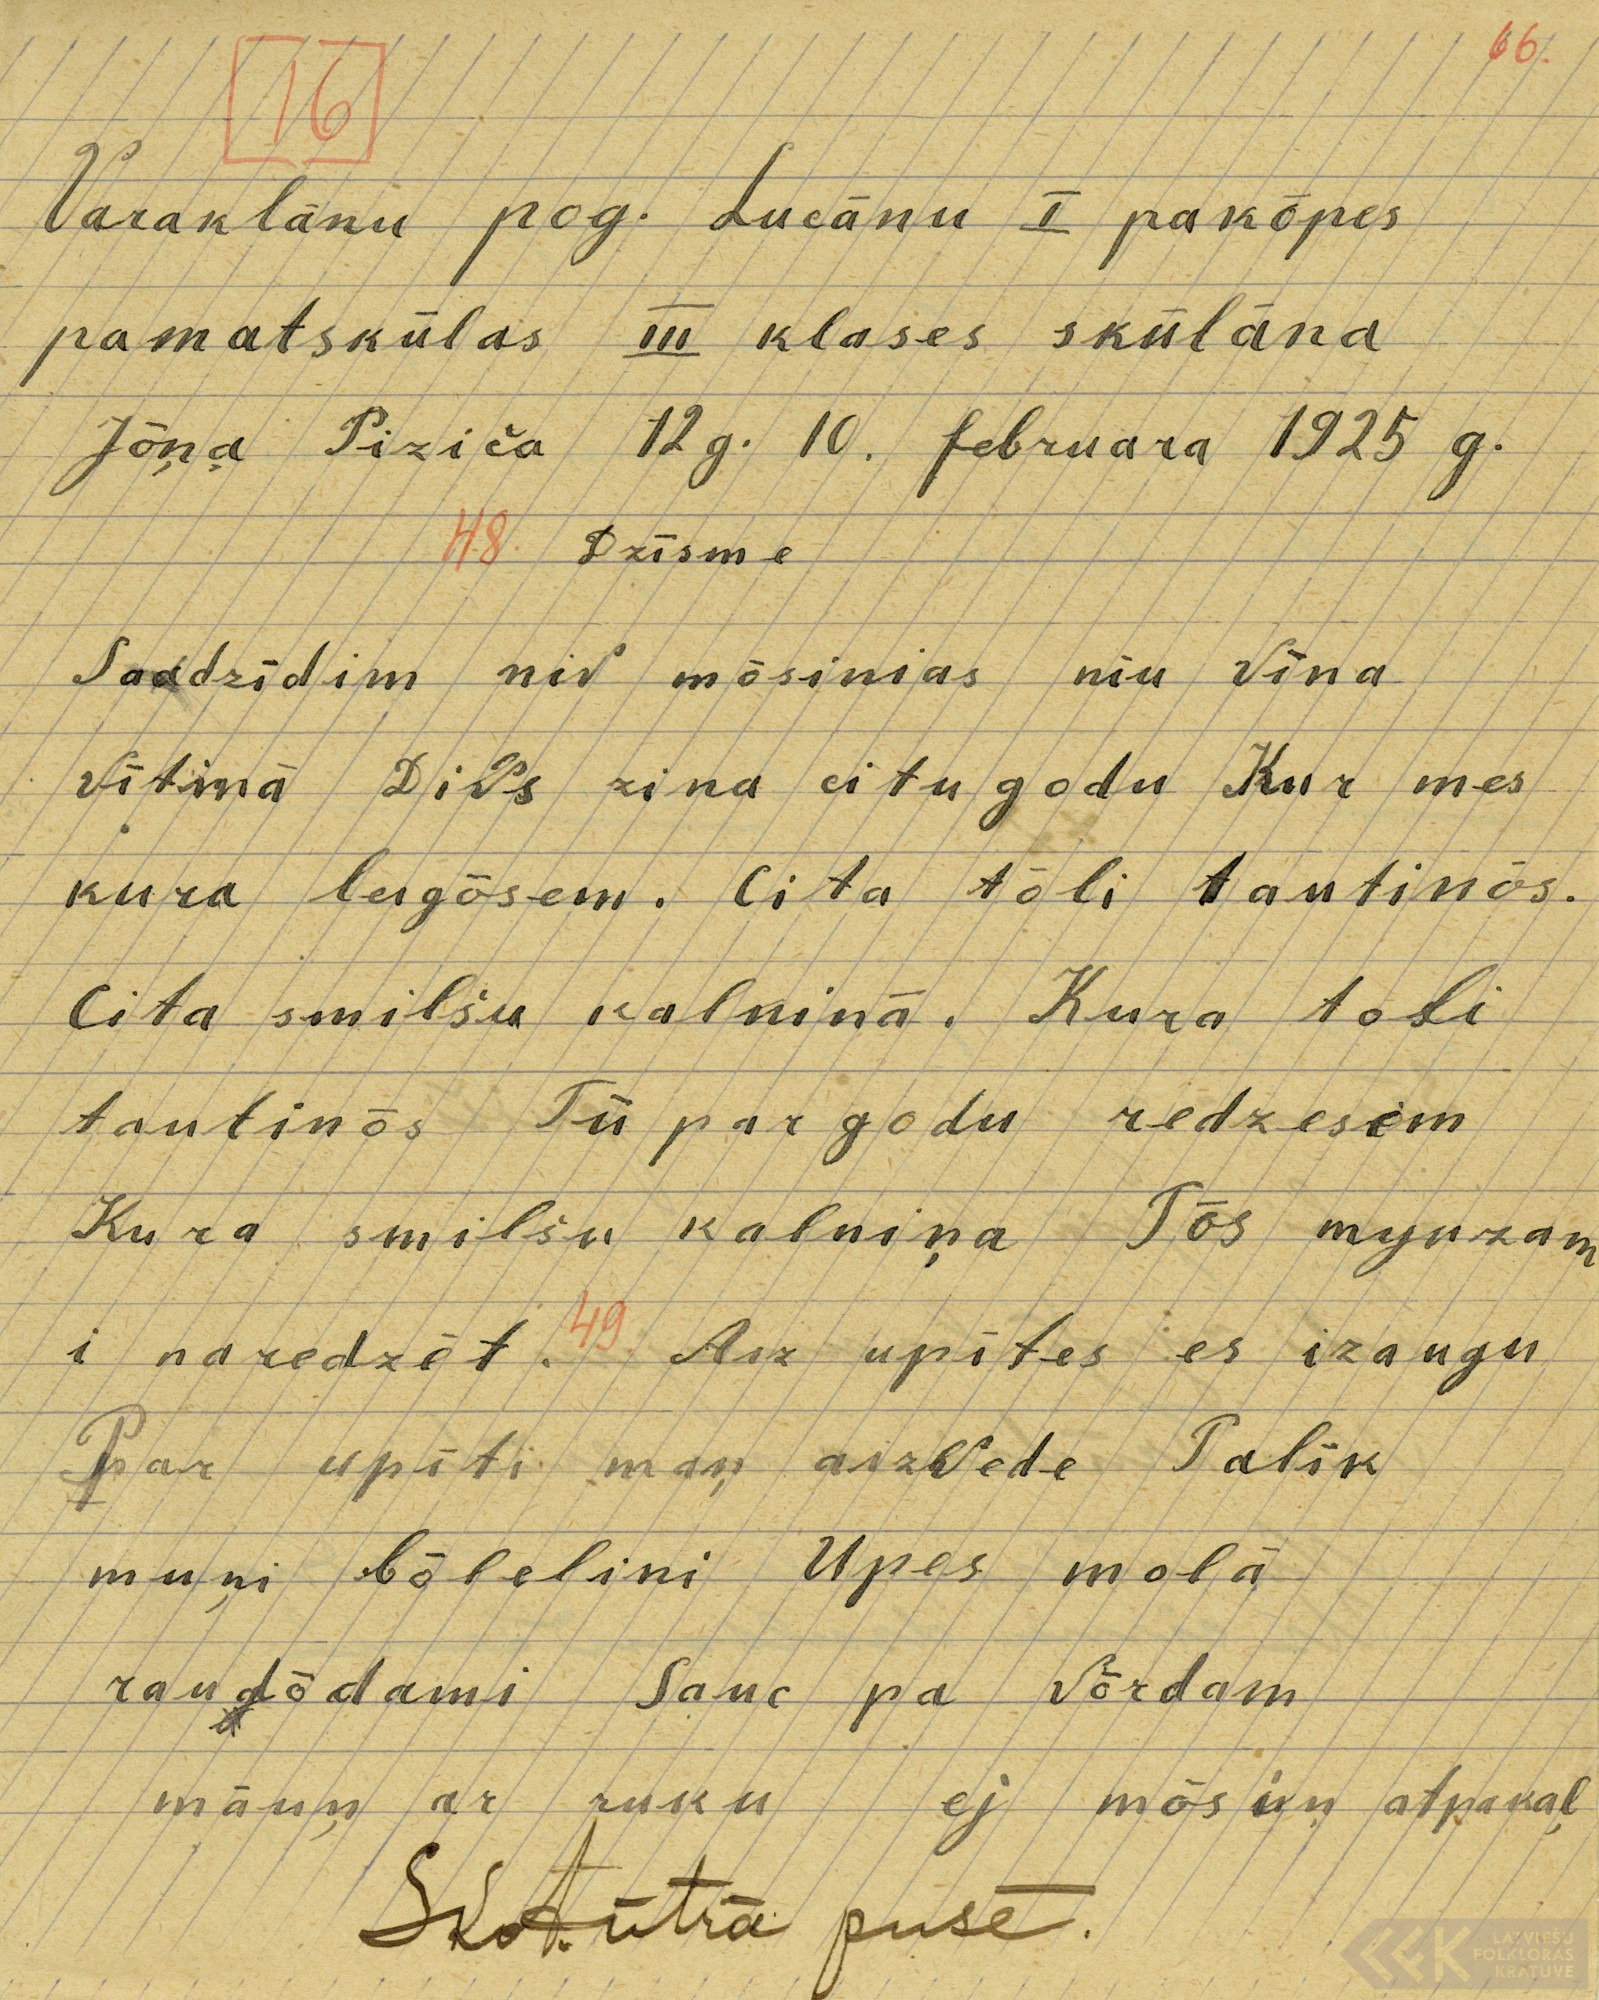 16
66.
Varaklānu pog. Lucānu I pakōpes
pamatskūlas III klases skūlāna
Jōņa Piziča 12 g. 10. februara 1925 g.
48. Dzīsme
Saadzīdim niv mōsinias niu vīna
vītinā Divs zina citu godu Kur mes
kura lugōsem. Cita tōli tautinōs.
Cita smilšu kalninā. Kura toli
tautinōs Tū par godu redzesem
Kura smilšu kalniņa Tōs myuzam
i naredzēt. 49. Aiz upītes es izaugu
Par upīti maņ aizvede Palīk
muņi bōlelini Upes molā
raudōdami Sauc pa vōrdam
māuņ ar ruku ej mōsiņ atpakaļ
Skot. ūtrā pusē.
LATVIEŠU
FOLKLORAS
KRĀTUVE